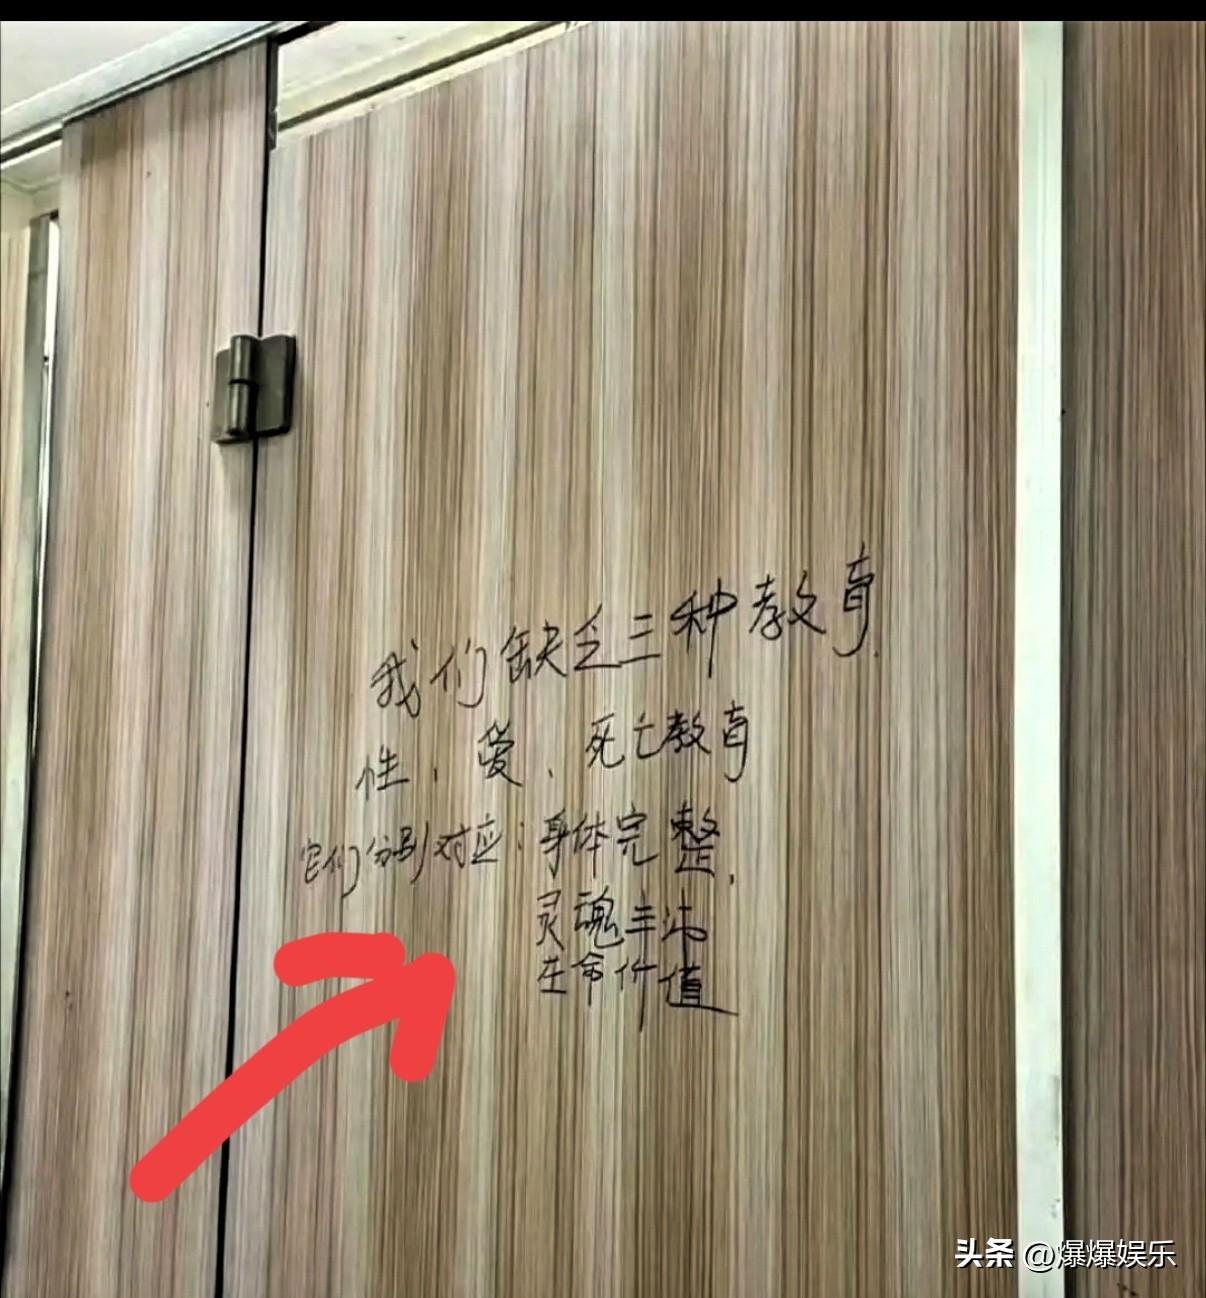 我们缺乏三种教育.
性、爱、死亡教育
它们分别对应:身体完整,
灵魂丰沛
生命价值
头条 @爆爆娱乐